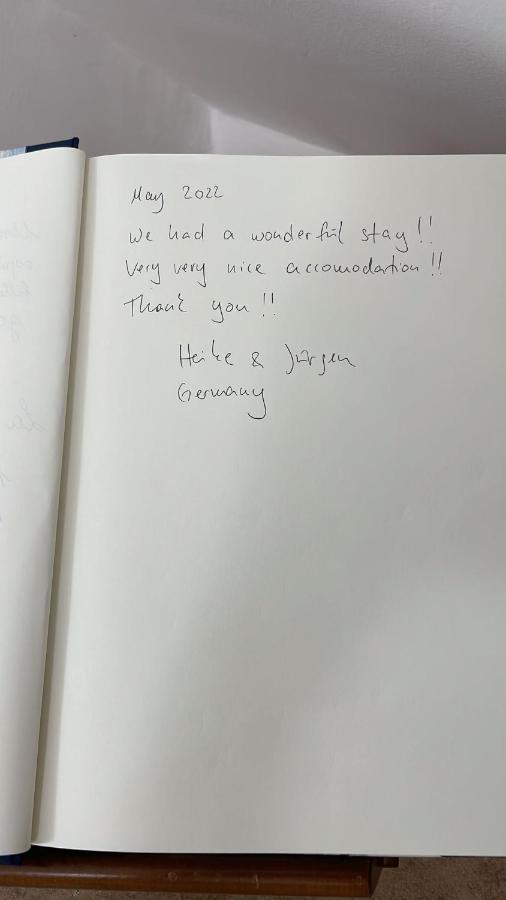 May 2022
We had a wonderful stay!!
Very very nice accomodation!!
Thank you!!
Heike & Jürgen
Germany